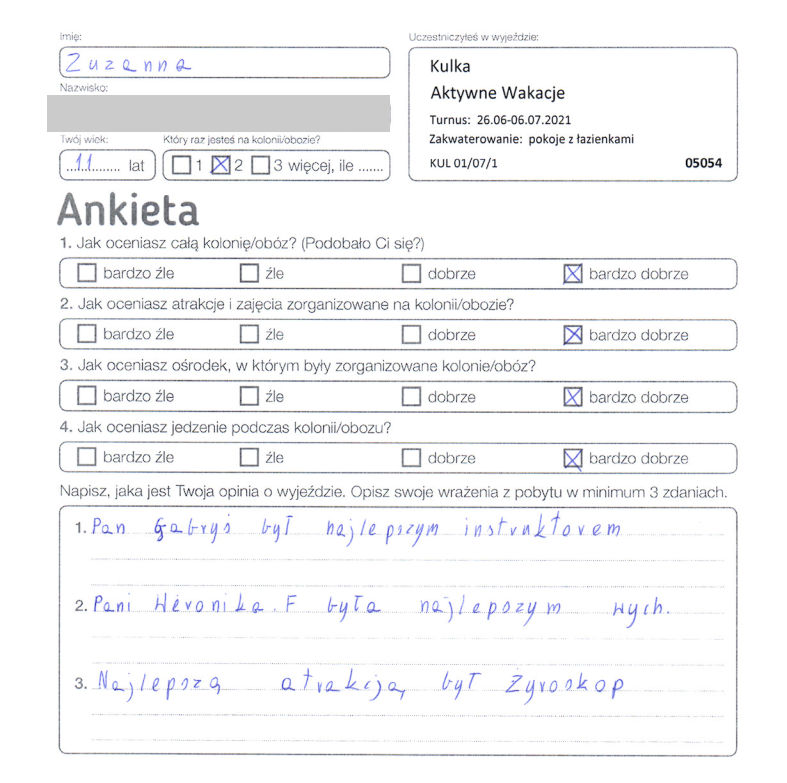 Imię:
Zuzanna
Nazwisko:
Twój wiek:
Który raz jesteś na kolonii/obozie?
11 lat
1 2 3 więcej, ile .......
Uczestniczyłeś w wyjeździe:
Kulka
Aktywne Wakacje
Turnus: 26.06-06.07.2021
Zakwaterowanie: pokoje z łazienkami
KUL 01/07/1 05054
Ankieta
1. Jak oceniasz całą kolonię/obóz? (Podobało Ci się?)
bardzo źle źle dobrze bardzo dobrze
2. Jak oceniasz atrakcje i zajęcia zorganizowane na kolonii/obozie?
bardzo źle źle dobrze bardzo dobrze
3. Jak oceniasz ośrodek, w którym były zorganizowane kolonie/obóz?
bardzo źle źle dobrze bardzo dobrze
4. Jak oceniasz jedzenie podczas kolonii/obozu?
bardzo źle źle dobrze bardzo dobrze
Napisz, jaka jest Twoja opinia o wyjeździe. Opisz swoje wrażenia z pobytu w minimum 3 zdaniach.
1. Pan Gabryś był najlepszym instruktorem
2. Pani Weronika. F była najlepszym wych.
3. Najlepszą atrakcją był Żyroskop